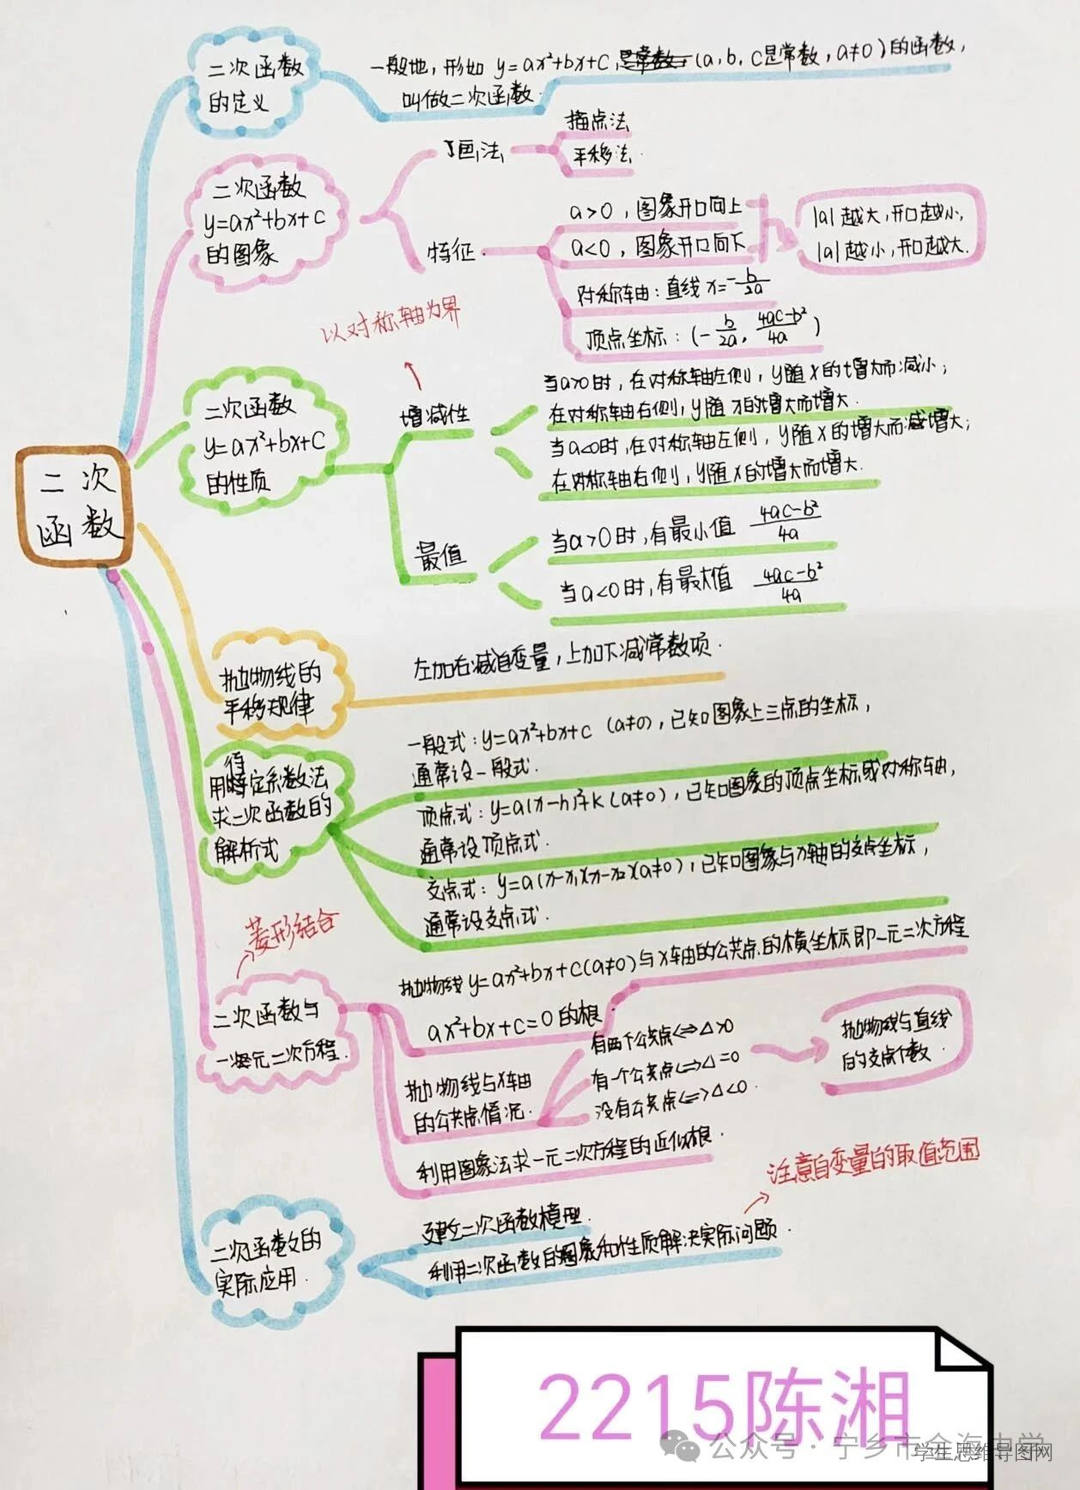 二次函数
二次函数
的定义
一般地，形如 y=ax²+bx+c，是常数，(a，b，c是常数，a≠0)的函数，
叫做二次函数．
二次函数
y=ax²+bx+c
的图象
画法
描点法
平移法．
特征
a>0，图象开口向上
a<0，图象开口向下
|a|越大，开口越小，
|a|越小，开口越大．
对称轴：直线x=-b/2a
顶点坐标：(-b/2a，4ac-b²/4a)
以对称轴为界
二次函数
y=ax²+bx+c
的性质
增减性
当a>0时，在对称轴左侧，y随x的增大而减小；
在对称轴右侧，y随x的增大而增大．
当a<0时，在对称轴左侧，y随x的增大而减增大；
在对称轴右侧，y随x的增大而增大．
最值
当a>0时，有最小值 4ac-b²/4a
当a<0时，有最大值 4ac-b²/4a
抛物线的
平移规律
左加右减自变量，上加下减常数项．
用待定系数法
求二次函数的
解析式
一般式：y=ax²+bx+c (a≠0)，已知图象上三点的坐标，
通常设一般式．
顶点式：y=a(x-h)²+k(a≠0)，已知图象的顶点坐标或对称轴，
通常设顶点式．
交点式：y=a(x-x₁)(x-x₂)(a≠0)，已知图象与x轴的交点坐标，
通常设交点式．
菱形结合
二次函数与
一元二次方程．
抛物线y=ax²+bx+c(a≠0)与x轴的公共点的横坐标即一元二次方程
ax²+bx+c=0的根．
抛物线与x轴
的公共点情况．
有两个公共点⇔△>0
有一个公共点⇔△=0
没有公共点⇔△<0．
抛物线与直线
的交点个数．
利用图象法求一元二次方程的近似根．
注意自变量的取值范围
二次函数的
实际应用．
建立二次函数模型．
利用二次函数的图象和性质解决实际问题．
2215陈湘
公众号·宁乡市金海中学
学生思维导图网